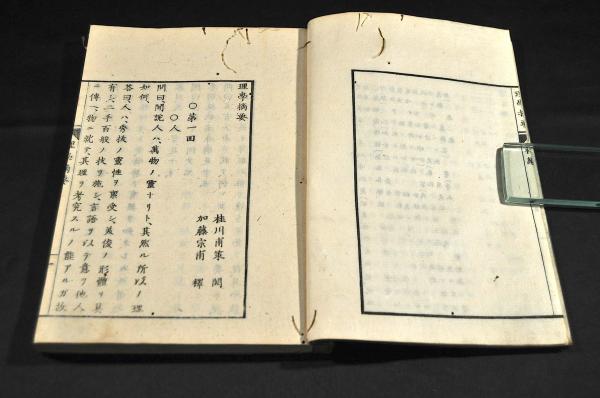 理學摘要
桂川甫策 閲
加藤宗甫 譯
〇第一回
〇人
問曰、聞説人ハ、萬物ノ靈ナリト、其然ル所以ノ理
如何、
答曰、人ハ、秀抜ノ靈性ヲ禀受シ、英俊ノ形體ヲ具
有シ、二手百般ノ技ヲ施シ、言語ヲ以テ意ヲ他人
ニ傳ヘ、物ニ就テ、其理ヲ考究スルノ能アルガ故